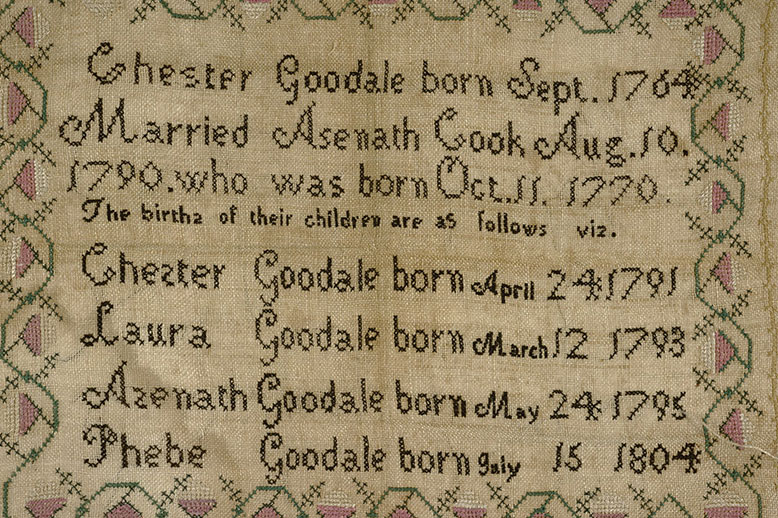 Chester Goodale born Sept. 1764
Married Asenath Cook Aug. 10.
1790. who was born Oct. 11. 1770.
The births of their children are as follows viz.
Chester Goodale born April 24 1791
Laura Goodale born March 12 1793
Asenath Goodale born May 24 1795
Phebe Goodale born July 15 1804